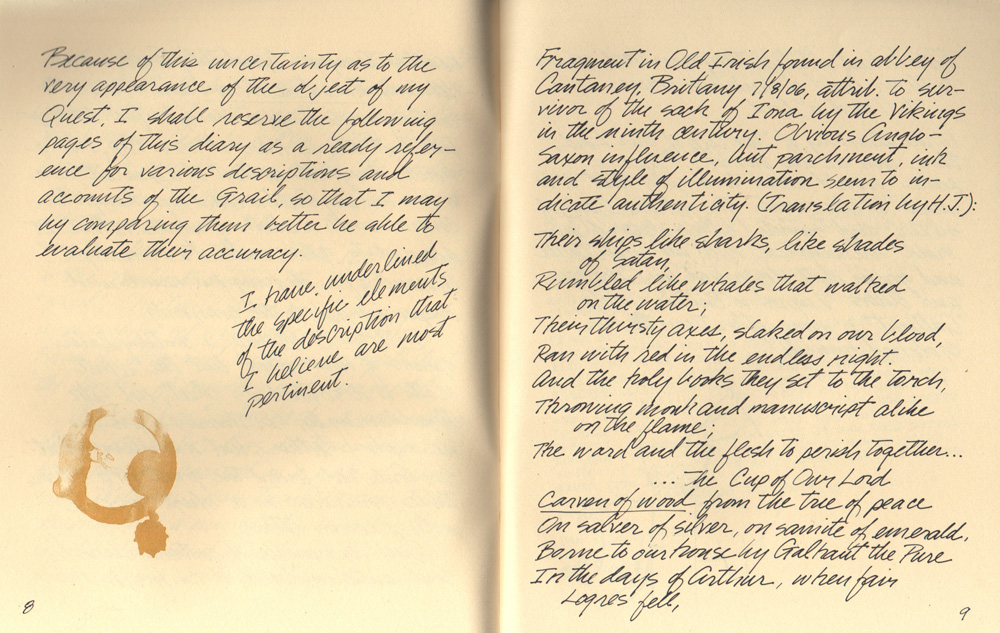 Because of this uncertainty as to the
very appearance of the object of my
Quest, I shall reserve the following
pages of this diary as a ready refer-
ence for various descriptions and
accounts of the Grail, so that I may
by comparing them better be able to
evaluate their accuracy.
I have underlined
the specific elements
of the description that
I believe are most
pertinent.
8
Fragment in Old Irish found in abbey of
Cantaney, Britany 7/8/06, attrib. to sur-
vivor of the sack of Iona by the Vikings
in the ninth century. Obvious Anglo-
Saxon influence, but parchment, ink
and style of illumination seem to in-
dicate authenticity. (Translation by H.J.):
Their ships like sharks, like shades
of Satan,
Rumbled like whales that walked
on the water;
Their thirsty axes, slaked on our blood,
Ran with red in the endless night.
And the holy books they set to the torch,
Throwing monk and manuscript alike
on the flame;
The word and the flesh to perish together...
... The Cup of Our Lord
Carven of wood from the tree of peace
On salver of silver, on samite of emerald,
Borne to our house by Galhaut the Pure
In the days of Arthur, when fair
Logres fell,
9